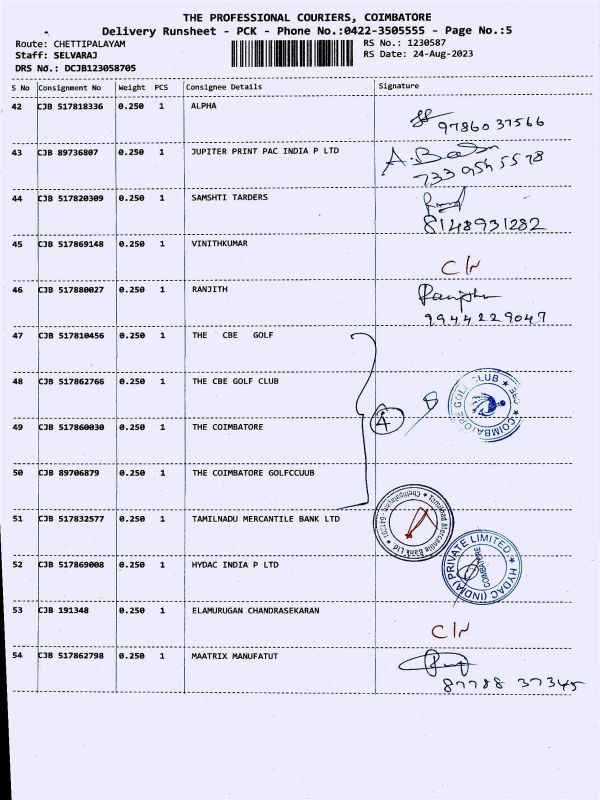 THE PROFESSIONAL COURIERS, COIMBATORE
Delivery Runsheet - PCK - Phone No.:0422-3505555 - Page No.:5
Route: CHETTIPALAYAM RS No.: 1230587
Staff: SELVARAJ RS Date: 24-Aug-2023
DRS No.: DCJB123058705
S No Consignment No Weight PCS Consignee Details Signature
42 CJB 517818336 0.250 1 ALPHA
9786037566
43 CJB 89736807 0.250 1 JUPITER PRINT PAC INDIA P LTD
7339545578
44 CJB 517820309 0.250 1 SAMSHTI TARDERS
8148931282
45 CJB 517869148 0.250 1 VINITHKUMAR
46 CJB 517880027 0.250 1 RANJITH
9944229047
47 CJB 517810456 0.250 1 THE CBE GOLF
48 CJB 517862766 0.250 1 THE CBE GOLF CLUB
COIMBATORE GOLF CLUB CBE
49 CJB 517860030 0.250 1 THE COIMBATORE
4
50 CJB 89706879 0.250 1 THE COIMBATORE GOLFCCUUB
51 CJB 517832577 0.250 1 TAMILNADU MERCANTILE BANK LTD
Tamilnad Mercantile Bank Ltd
52 CJB 517869008 0.250 1 HYDAC INDIA P LTD
HYDAC (INDIA) PRIVATE LIMITED
COIMBATORE
53 CJB 191348 0.250 1 ELAMURUGAN CHANDRASEKARAN
54 CJB 517862798 0.250 1 MAATRIX MANUFATUT
87788 37345